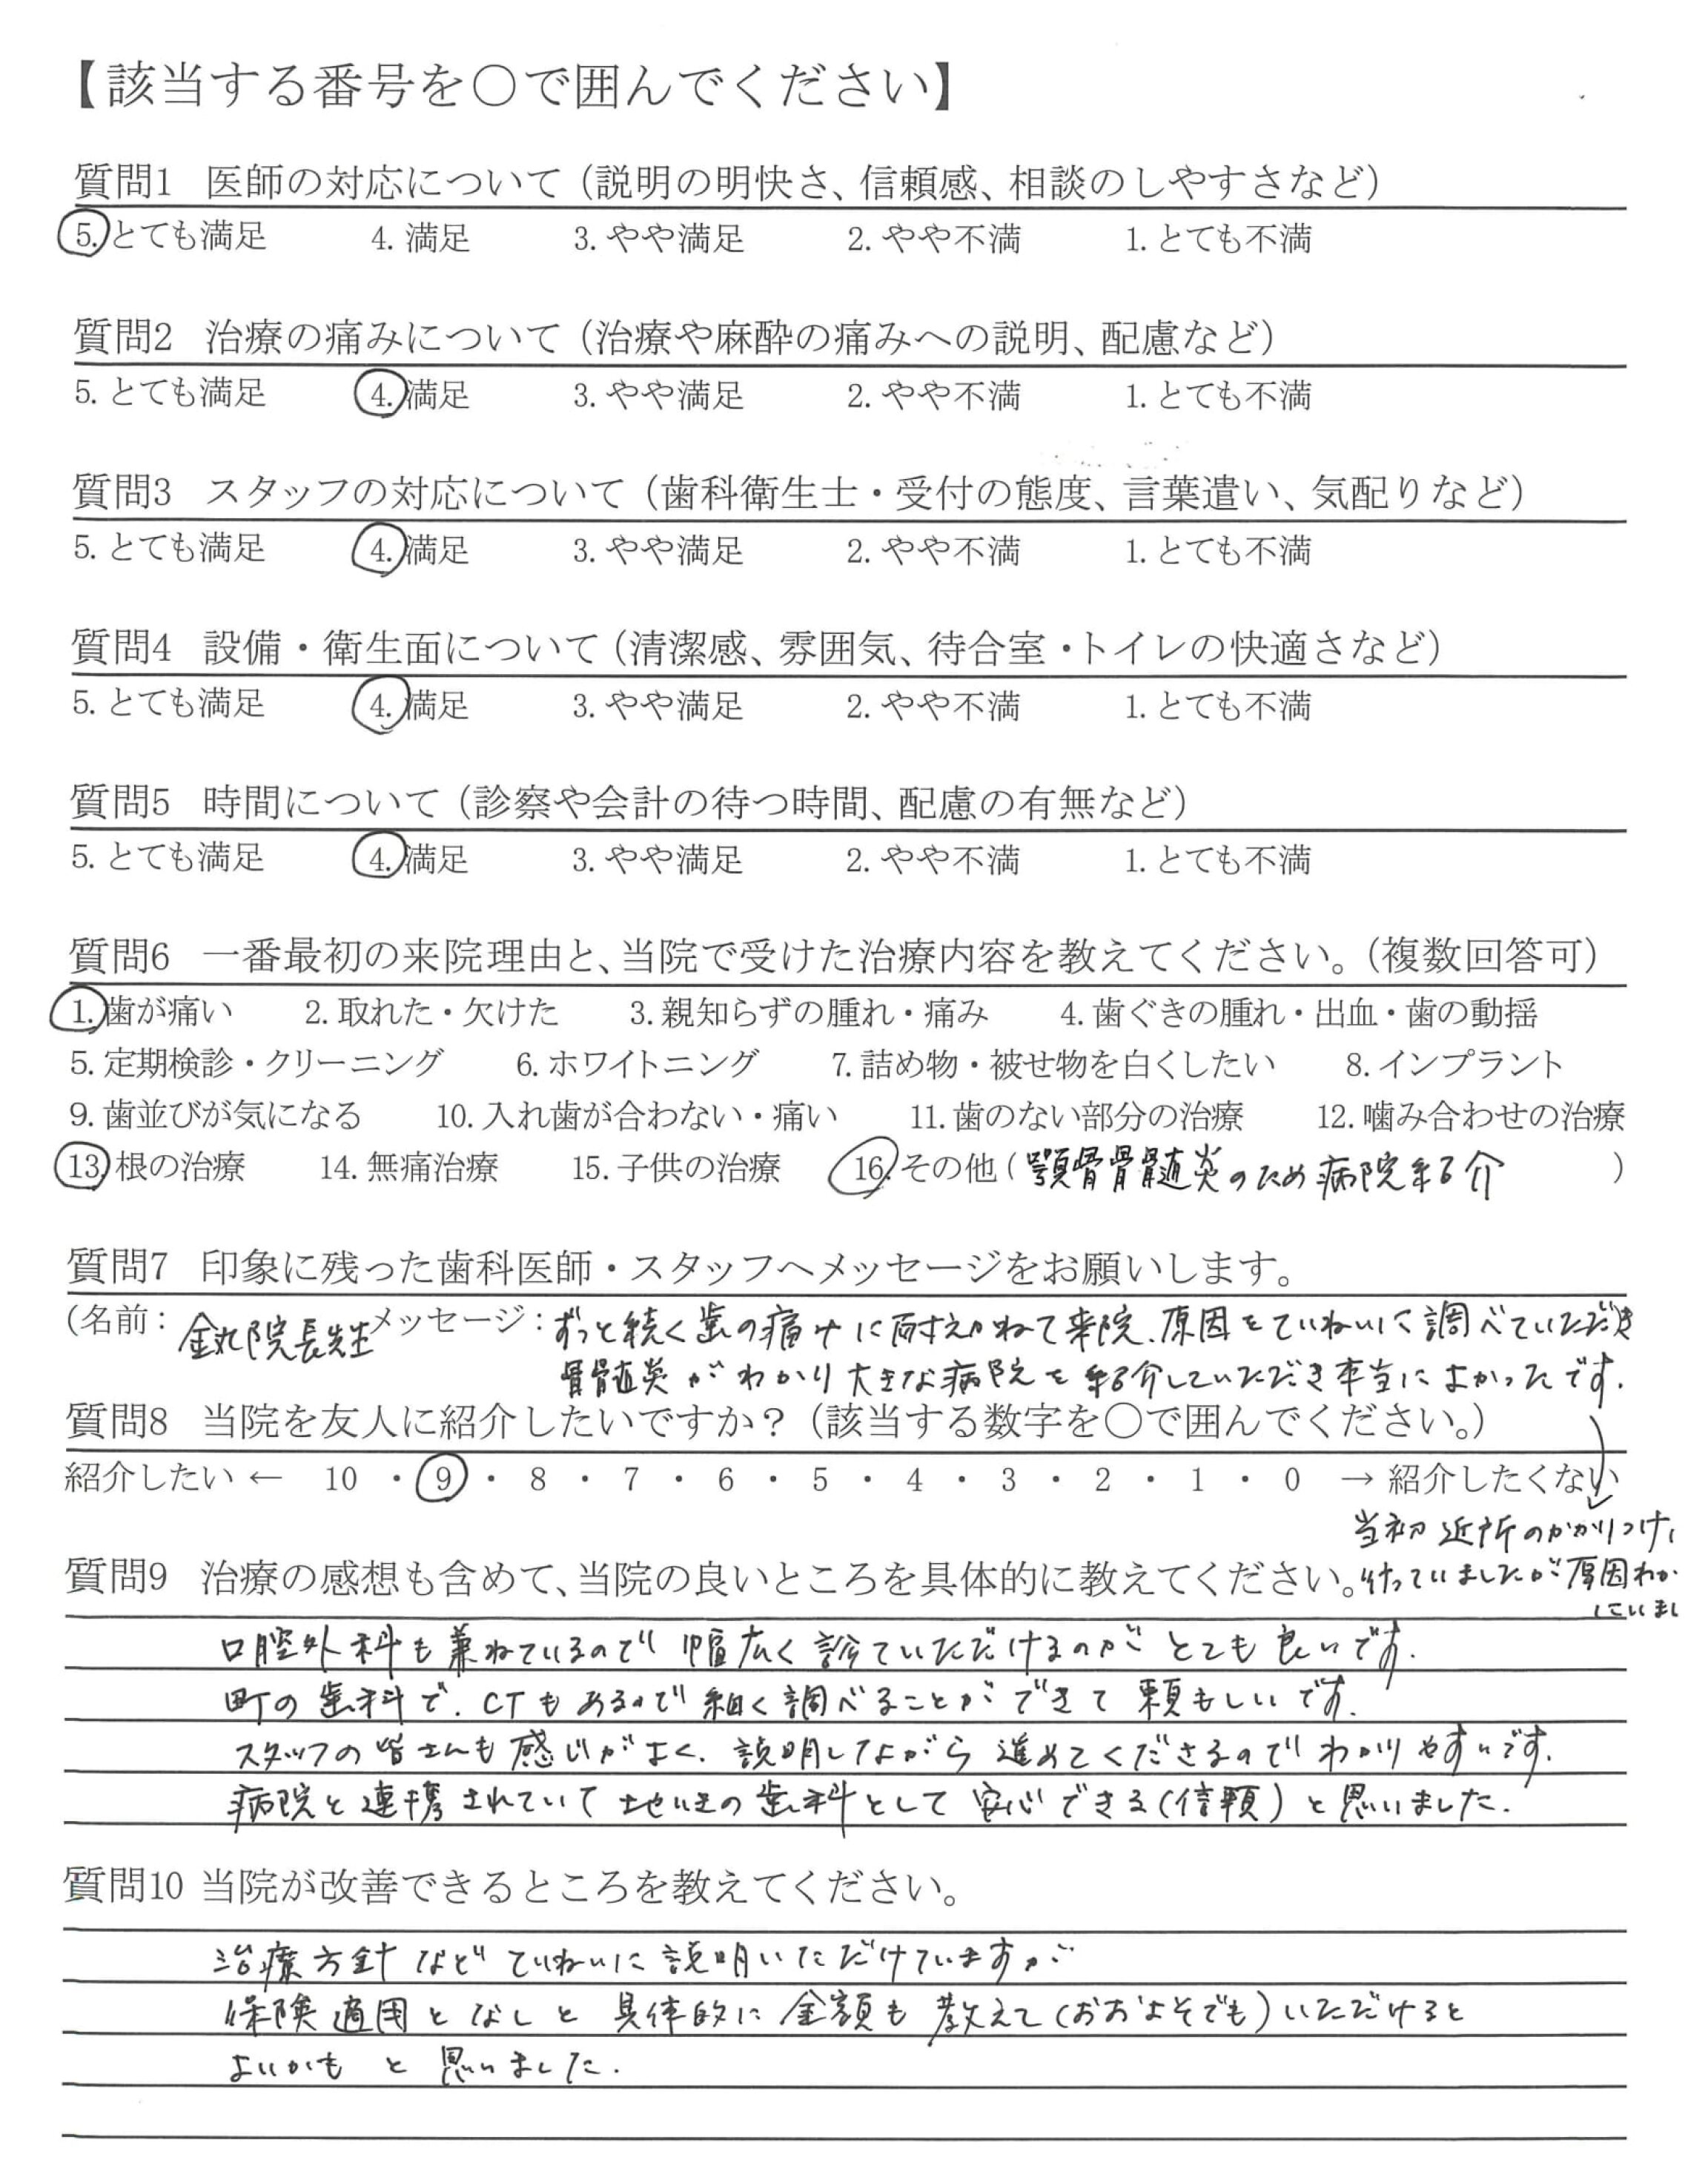 【該当する番号を○で囲んでください】
質問1 医師の対応について（説明の明快さ、信頼感、相談のしやすさなど）
5. とても満足 4. 満足 3. やや満足 2. やや不満 1. とても不満
質問2 治療の痛みについて（治療や麻酔の痛みへの説明、配慮など）
5. とても満足 4. 満足 3. やや満足 2. やや不満 1. とても不満
質問3 スタッフの対応について（歯科衛生士・受付の態度、言葉遣い、気配りなど）
5. とても満足 4. 満足 3. やや満足 2. やや不満 1. とても不満
質問4 設備・衛生面について（清潔感、雰囲気、待合室・トイレの快適さなど）
5. とても満足 4. 満足 3. やや満足 2. やや不満 1. とても不満
質問5 時間について（診察や会計の待つ時間、配慮の有無など）
5. とても満足 4. 満足 3. やや満足 2. やや不満 1. とても不満
質問6 一番最初の来院理由と、当院で受けた治療内容を教えてください。（複数回答可）
1. 歯が痛い 2. 取れた・欠けた 3. 親知らずの腫れ・痛み 4. 歯ぐきの腫れ・出血・歯の動揺
5. 定期検診・クリーニング 6. ホワイトニング 7. 詰め物・被せ物を白くしたい 8. インプラント
9. 歯並びが気になる 10. 入れ歯が合わない・痛い 11. 歯のない部分の治療 12. 噛み合わせの治療
13. 根の治療 14. 無痛治療 15. 子供の治療 16. その他（顎骨骨髄炎のため病院紹介）
質問7 印象に残った歯科医師・スタッフへメッセージをお願いします。
（名前：金丸院長先生 メッセージ：ずっと続く歯の痛みに耐えかねて来院、原因をていねいに調べていただき
骨髄炎がわかり大きな病院を紹介していただき本当によかったです。
質問8 当院を友人に紹介したいですか？（該当する数字を○で囲んでください。）
紹介したい ← 10 ・ 9 ・ 8 ・ 7 ・ 6 ・ 5 ・ 4 ・ 3 ・ 2 ・ 1 ・ 0 → 紹介したくない
当初 近所のかかりつけ
質問9 治療の感想も含めて、当院の良いところを具体的に教えてください。行っていましたが原因わか
口腔外科も兼ねているので幅広く診ていただけるのがとても良いです。
町の歯科で、CTもあるので細く調べることができて頼もしいです。
スタッフの皆さんも感じがよく、説明しながら進めてくださるのでわかりやすいです。
病院と連携されていて地いきの歯科として安心できる（信頼）と思いました。
質問10 当院が改善できるところを教えてください。
治療方針などていねいに説明いただけていますが
保険適用となしと具体的に金額も教えて（おおよそでも）いただけると
よいかもと思いました。